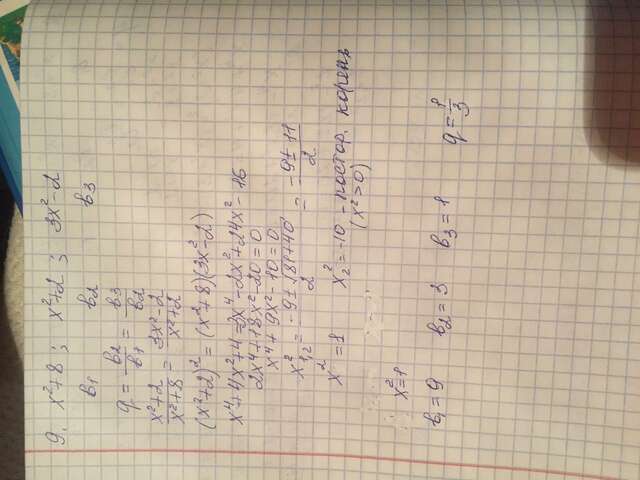 9. x²+8 ; x²+2 ; 3x²-2
b₁ b₂ b₃
q = b₂/b₁ = b₃/b₂
(x²+2)/(x²+8) = (3x²-2)/(x²+2)
(x²+2)² = (x²+8)(3x²-2)
x⁴+4x²+4=3x⁴-2x²+24x²-16
2x⁴+18x²-20=0
x⁴+9x²-10=0
x²₁,₂ = (-9±√(81+40))/2 = (-9±11)/2
x² = 1 x²₂ = -10 - постор. корень
(x²>0)
x²=1
b₁=9 b₂=3 b₃=1 q=1/3